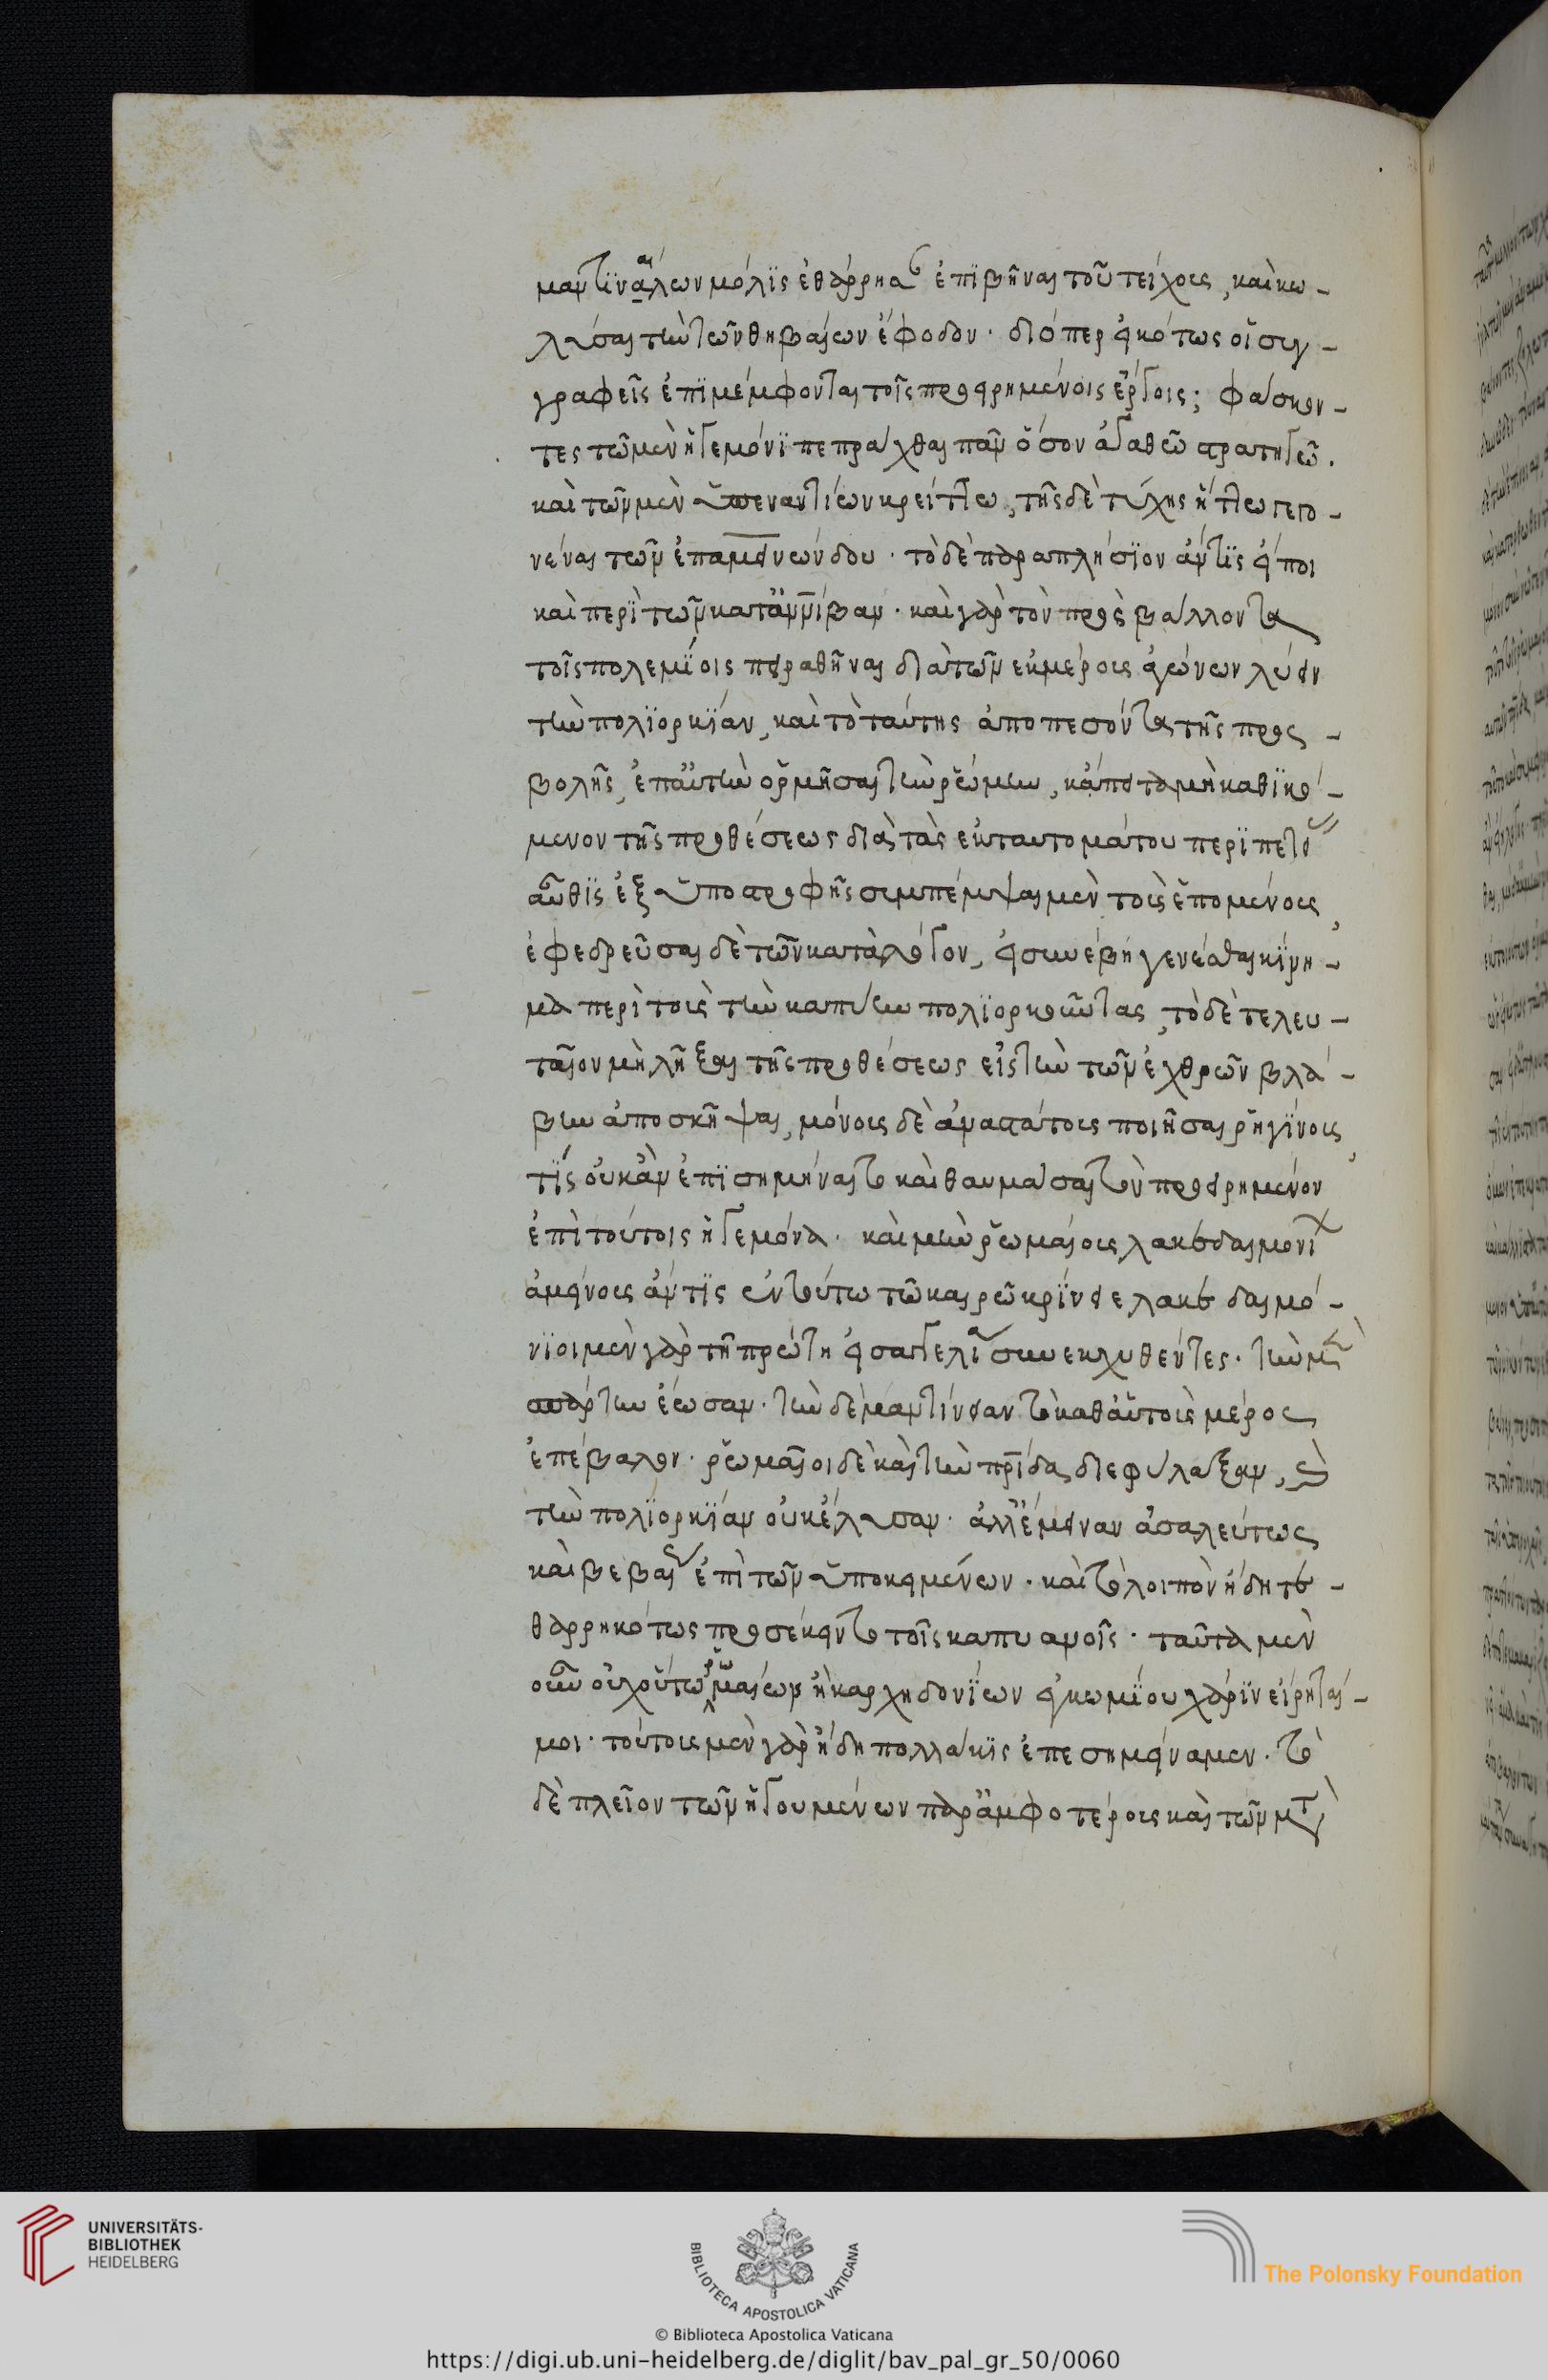 μαντινάλεων μόλις ἐθάρρησαν ἐπιβῆναι τοῦ τείχους, καὶ κω-
λῦσαι τὴν τῶν θηβαίων ἔφοδον· διόπερ εἰκότως οἱ συγ-
γραφεῖς ἐπιμέμφονται τοῖς προειρημένοις ἔργοις; φάσκον-
τες τῶ μὲν ἡγεμόνι πεπράχθαι πᾶν ὅσον ἀγαθῶ στρατηγῶ.
καὶ τῶν μὲν ὑπεναντίων κρείττω, τῆς δὲ τύχης ἥττω γεγο-
νέναι τῶν ἐπαμεινώνδου· τὸ δὲ παραπλήσιον ἄν τις εἴποι
καὶ περὶ τῶν κατ' ἀννίβαν· καὶ γὰρ τὸν προσβάλλοντα
τοῖς πολεμίοις πειραθῆναι διὰ τῶν ἐκ μέρους ἀγώνων λύειν
τὴν πολιορκίαν, καὶ τὸ ταύτης ἀποπεσόντα τῆς προς-
βολῆς, ἐπ' αὐτὴν ὁρμῆσαι τὴν ῥώμην, κἄπειτα μὴ καθικό-
μενον τῆς προθέσεως διὰ τὰς ἐκ ταυτομάτου περιπετείας
αὖθις ἐξ ὑποστροφῆς συμπέμψαι μὲν τοὺς ἑπομένους,
ἐφεδρεῦσαι δὲ τῶν κατὰ λόγον, εἰ συνέβη γενέσθαι κίνη-
μα περὶ τοὺς τὴν καπύην πολιορκοῦντας, τὸ δὲ τελευ-
ταῖον μὴ λῆξαι τῆς προθέσεως εἰς τὴν τῶν ἐχθρῶν βλά-
βην ἀποσκῆψαι, μόνους δὲ ἀναστάτους ποιῆσαι ῥηγίνους,
τίς οὐκ ἂν ἐπισημήναιτο καὶ θαυμάσαι τὸν προειρημένον
ἐπὶ τούτοις ἡγεμόνα· καὶ μὴν ῥωμαίους λακεδαιμονίων
ἀμείνους ἄν τις ἐν τούτω τῶ καιρῶ κρίνειε λακεδαιμό-
νιοι μὲν γὰρ τῆ πρώτη εἰσαγγελία συνεκχυθέντες· τὴν μὲν
σπάρτην ἔσωσαν· τὴν δὲ μαντίνειαν τὸ καθ' αὑτοὺς μέρος
ἐπέβαλον· ῥωμαῖοι δὲ καὶ τὴν πατρίδα διεφύλαξαν, καὶ
τὴν πολιορκίαν οὐκ ἔλυσαν· ἀλλ' ἔμειναν ἀσαλεύτως
καὶ βεβαίως ἐπὶ τῶν ὑποκειμένων· καὶ τὸ λοιπὸν ἤδη τε-
θαρρηκότως προσέκειντο τοῖς καπυανοῖς· ταῦτα μὲν
οὖν οὐχ οὕτω ῥωμαίων ἢ καρχηδονίων ἐγκωμίου χάριν εἴρηταί
μοι· τούτους μὲν γὰρ ἤδη πολλάκις ἐπεσημεινάμεν· τὸ
δὲ πλεῖον τῶν ἡγουμένων παρ' ἀμφοτέροις καὶ τῶν μετὰ
UNIVERSITÄTS-
BIBLIOTHEK
HEIDELBERG
BIBLIOTECA APOSTOLICA VATICANA
The Polonsky Foundation
© Biblioteca Apostolica Vaticana
https://digi.ub.uni-heidelberg.de/diglit/bav_pal_gr_50/0060